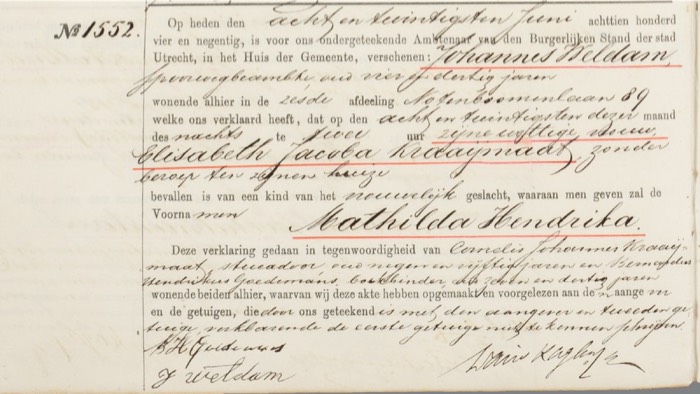 No 1552.
Op heden den acht en twintigsten Juni achttien honderd
vier en negentig, is voor ons ondergeteekende Ambtenaar van den Burgerlijken Stand der stad
Utrecht, in het Huis der Gemeente, verschenen: Johannes Weldam,
spoorwegbeambte, oud vier en dertig jaren
wonende alhier in de zesde afdeeling Notenboomenlaan 89
welke ons verklaard heeft, dat op den acht en twintigsten dezer maand
des nachts te twee uur zijne wettige vrouw,
Elisabeth Jacoba Kraaijmaat, zonder
beroep ten zijnen huize
bevallen is van een kind van het vrouwelijk geslacht, waaraan men geven zal de
Voornamen Mathilda Hendrika.
Deze verklaring gedaan in tegenwoordigheid van Cornelis Johannes Kraaij-
maat, stucadoor, oud negen en vijftig jaren en Bernardus
Hendrikus Goedemans, boekbinder, oud zeven en dertig jaren
wonende beiden alhier, waarvan wij deze akte hebben opgemaakt en voorgelezen aan de n aange ver
en de getuigen, die door ons geteekend is met den aangever en tweeden ge-
tuige, verklarende de eerste getuige niet te kunnen schrijven
B H Goedemans
J Weldam